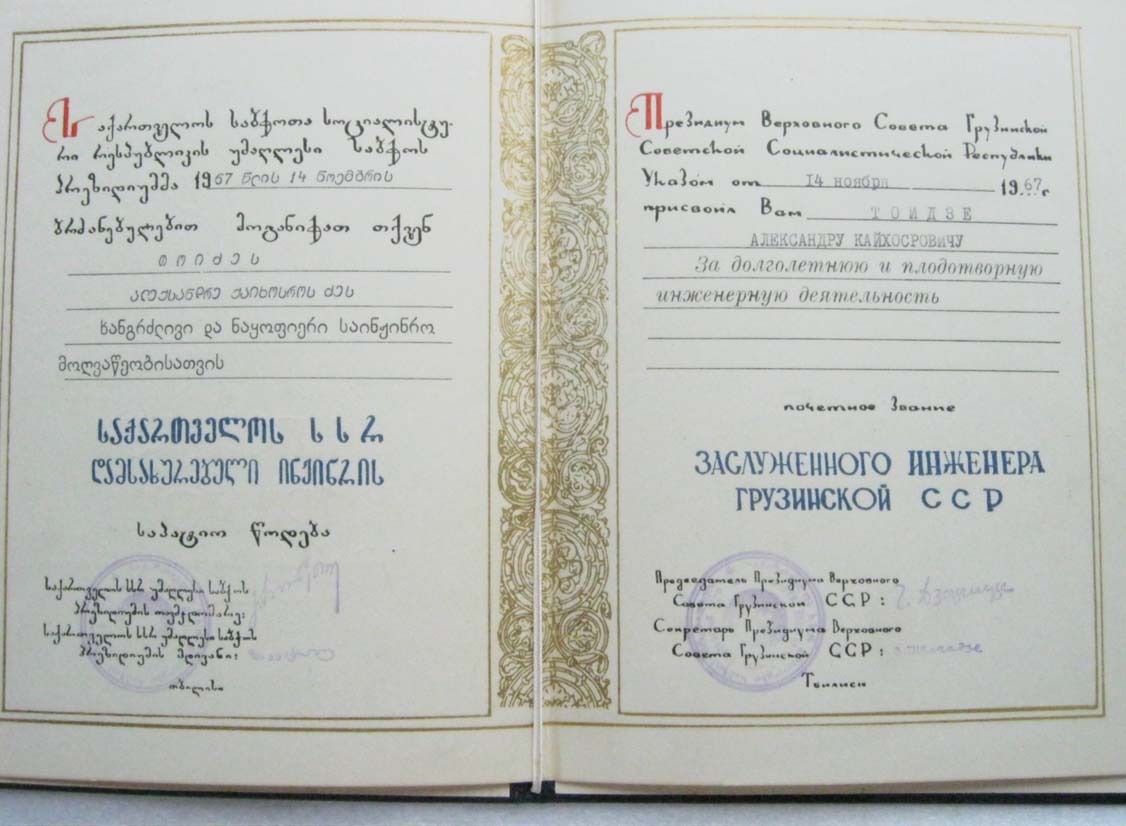 საქართველოს საბჭოთა სოციალისტუ-
რი რესპუბლიკის უმაღლესი საბჭოს
პრეზიდიუმმა 1967 წლის 14 ნოემბრის
ბრძანებულებით მოგანიჭათ თქვენ
თოიძეს
ალექსანდრე ქაიხოსროს ძეს
ხანგრძლივი და ნაყოფიერი საინჟინრო
მოღვაწეობისათვის
საქართველოს სსრ
დამსახურებული ინჟინრის
საპატიო წოდება
საქართველოს სსრ უმაღლესი საბჭოს
პრეზიდიუმის თავმჯდომარე:
საქართველოს სსრ უმაღლესი საბჭოს
პრეზიდიუმის მდივანი:
თბილისი
Президиум Верховного Совета Грузинской
Советской Социалистической Республики
Указом от 14 ноября 1967 г
присвоил Вам ТОИДЗЕ
АЛЕКСАНДРУ КАЙХОСРОВИЧУ
За долголетнюю и плодотворную
инженерную деятельность
почетное звание
ЗАСЛУЖЕННОГО ИНЖЕНЕРА
ГРУЗИНСКОЙ ССР
Председатель Президиума Верховного
Совета Грузинской ССР:
Секретарь Президиума Верховного
Совета Грузинской ССР:
Тбилиси